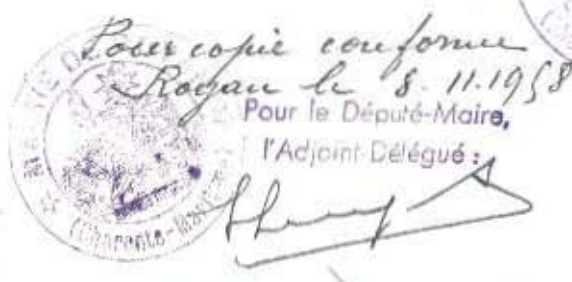 Pour copie conforme
Royan le 8.11.1958
Pour le Député-Maire,
l'Adjoint-Délégué :
MAIRIE DE
(Charente-Mari